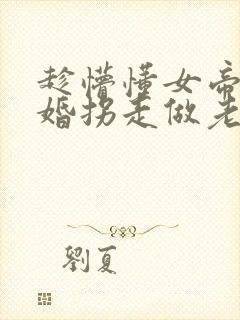 趁懵懂女帝
婚拐走做老
劉夏